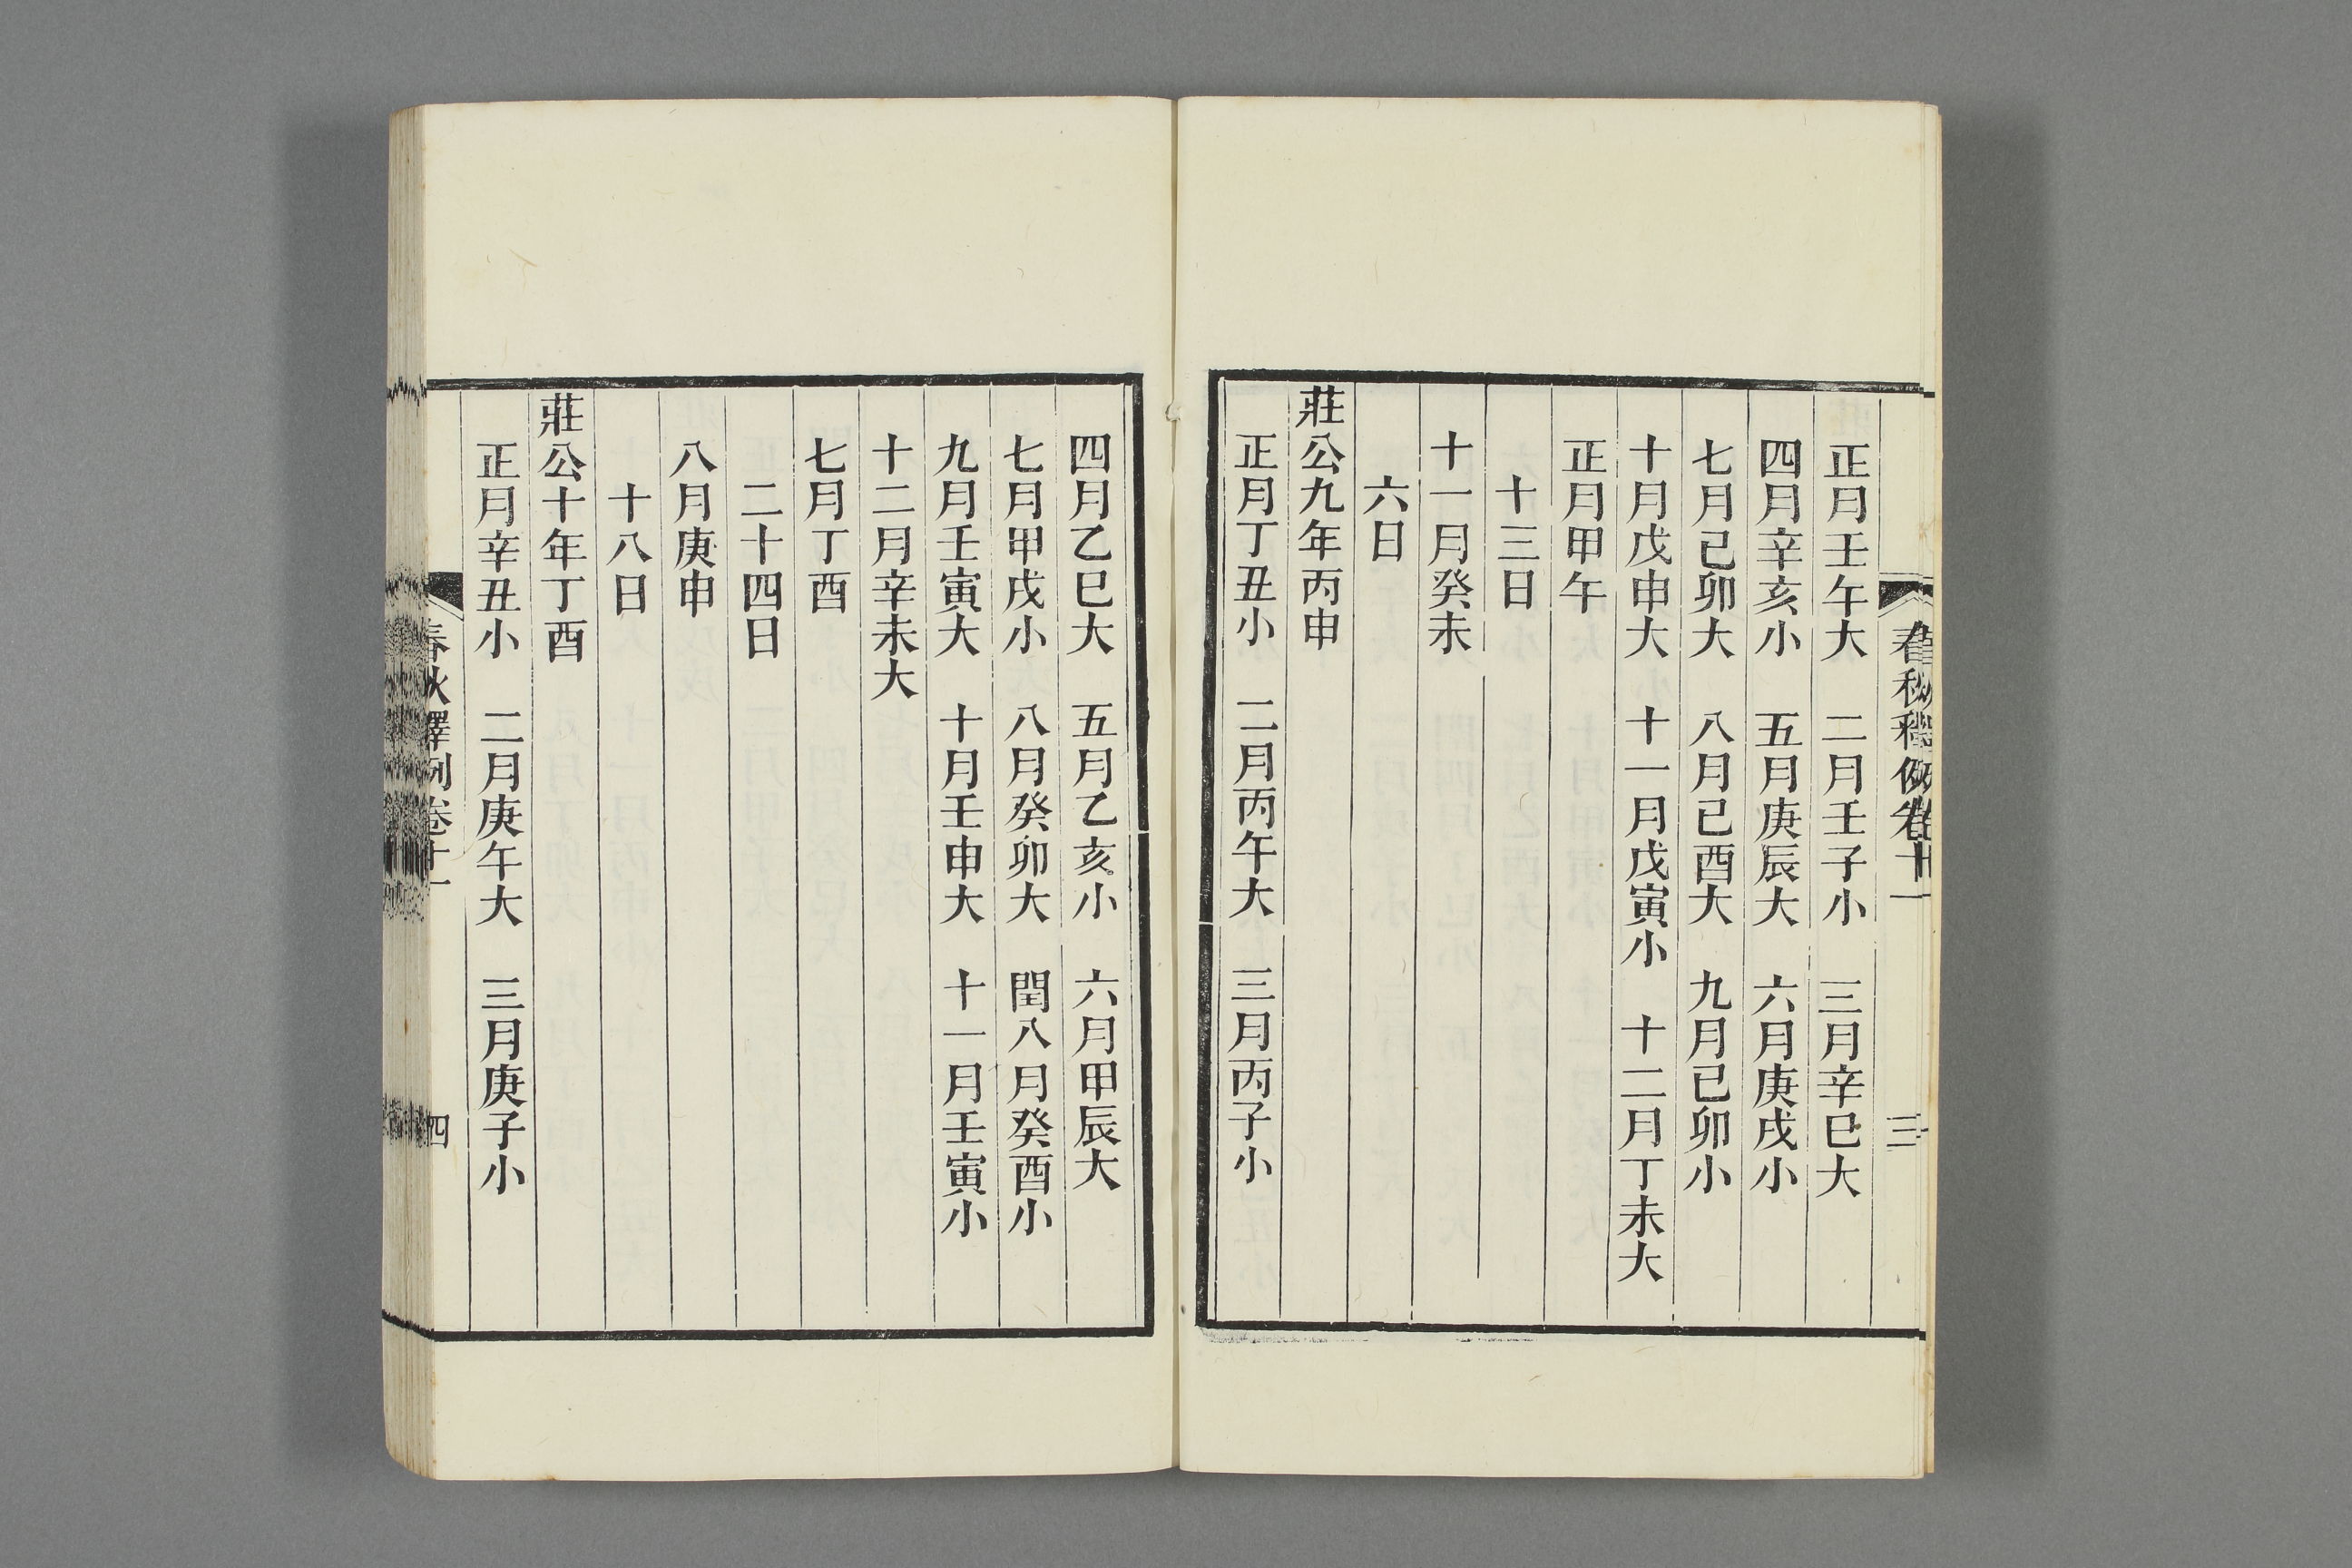 春秋釋例卷十一
三
正月壬午大　二月壬子小　三月辛巳大
四月辛亥小　五月庚辰大　六月庚戌小
七月己卯大　八月己酉大　九月己卯小
十月戊申大　十一月戊寅小　十二月丁未大
正月甲午
十三日
十一月癸未
六日
莊公九年丙申
正月丁丑小　二月丙午大　三月丙子小
四月乙巳大　五月乙亥小　六月甲辰大
七月甲戌小　八月癸卯大　閏八月癸酉小
九月壬寅大　十月壬申大　十一月壬寅小
十二月辛未大
七月丁酉
二十四日
八月庚申
十八日
莊公十年丁酉
正月辛丑小　二月庚午大　三月庚子小
春秋釋例卷十一
四